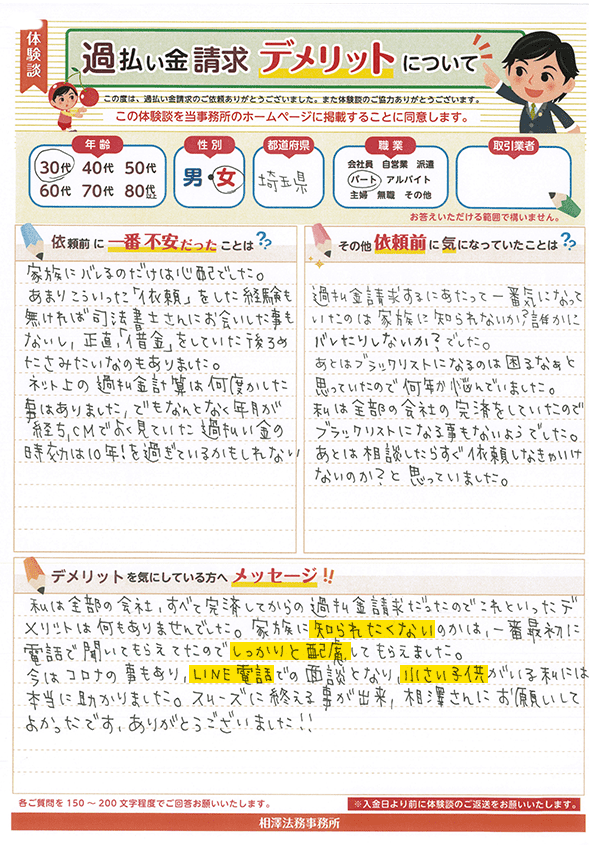 体験談
過払い金請求 デメリットについて
この度は、過払い金請求のご依頼ありがとうございました。また体験談のご協力ありがとうございます。
この体験談を当事務所のホームページに掲載することに同意します。
年齢
30代 40代 50代
60代 70代 80代以上
性別
男・女
都道府県
埼玉県
職業
会社員 自営業 派遣
パート アルバイト
主婦 無職 その他
取引業者
お答えいただける範囲で構いません。
依頼前に一番不安だったことは??
家族にバレるのだけは心配でした。
あまりこういった「依頼」をした経験も
無ければ司法書士さんにお会いした事も
ないし、正直、「借金」をしていた後ろめ
たさみたいなのもありました。
ネット上の過払金計算は何度かした
事はありました、でもなんとなく年月が
経ち、CMでよく見ていた過払い金の
時効は10年!を過ぎているかもしれない
その他依頼前に気になっていたことは??
過払金請求するにあたって一番気になって
いたのは家族に知られないか?誰かに
バレたりしないか?でした。
あとはブラックリストになるのは困るなぁと
思っていたので何年か悩んでいました。
私は全部の会社の完済をしていたので
ブラックリストになる事もないようでした。
あとは相談したらすぐ依頼しなきゃいけ
ないのか?と思っていました。
デメリットを気にしている方へメッセージ!!
私は全部の会社、すべて完済してからの過払金請求だったのでこれといったデ
メリットは何もありませんでした。家族に知られたくないのかは、一番最初に
電話で聞いてもらえてたのでしっかりと配慮してもらえました。
今はコロナの事もあり、LINE電話での面談となり、小さい子供がいる私には
本当に助かりました。スムーズに終える事が出来、相澤さんにお願いして
よかったです、ありがとうございました!!
各ご質問を150~200文字程度でご回答お願いいたします。
※入金日より前に体験談のご返送をお願いいたします。
相澤法務事務所